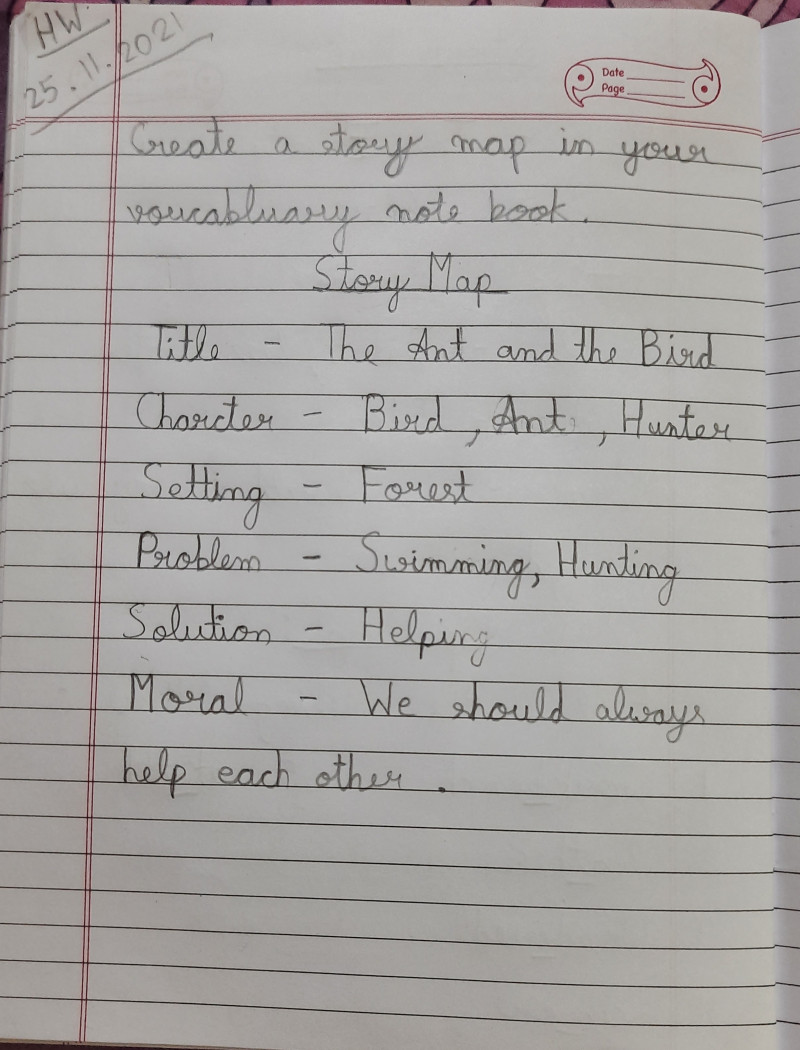 HW.
25.11.2021
Date
Page
Create a story map in your
voucabluary note book.
Story Map
Title - The Ant and the Bird
Charcter - Bird, Ant, Hunter
Setting - Forest
Problem - Swimming, Hunting
Solution - Helping
Moral - We should always
help each other.